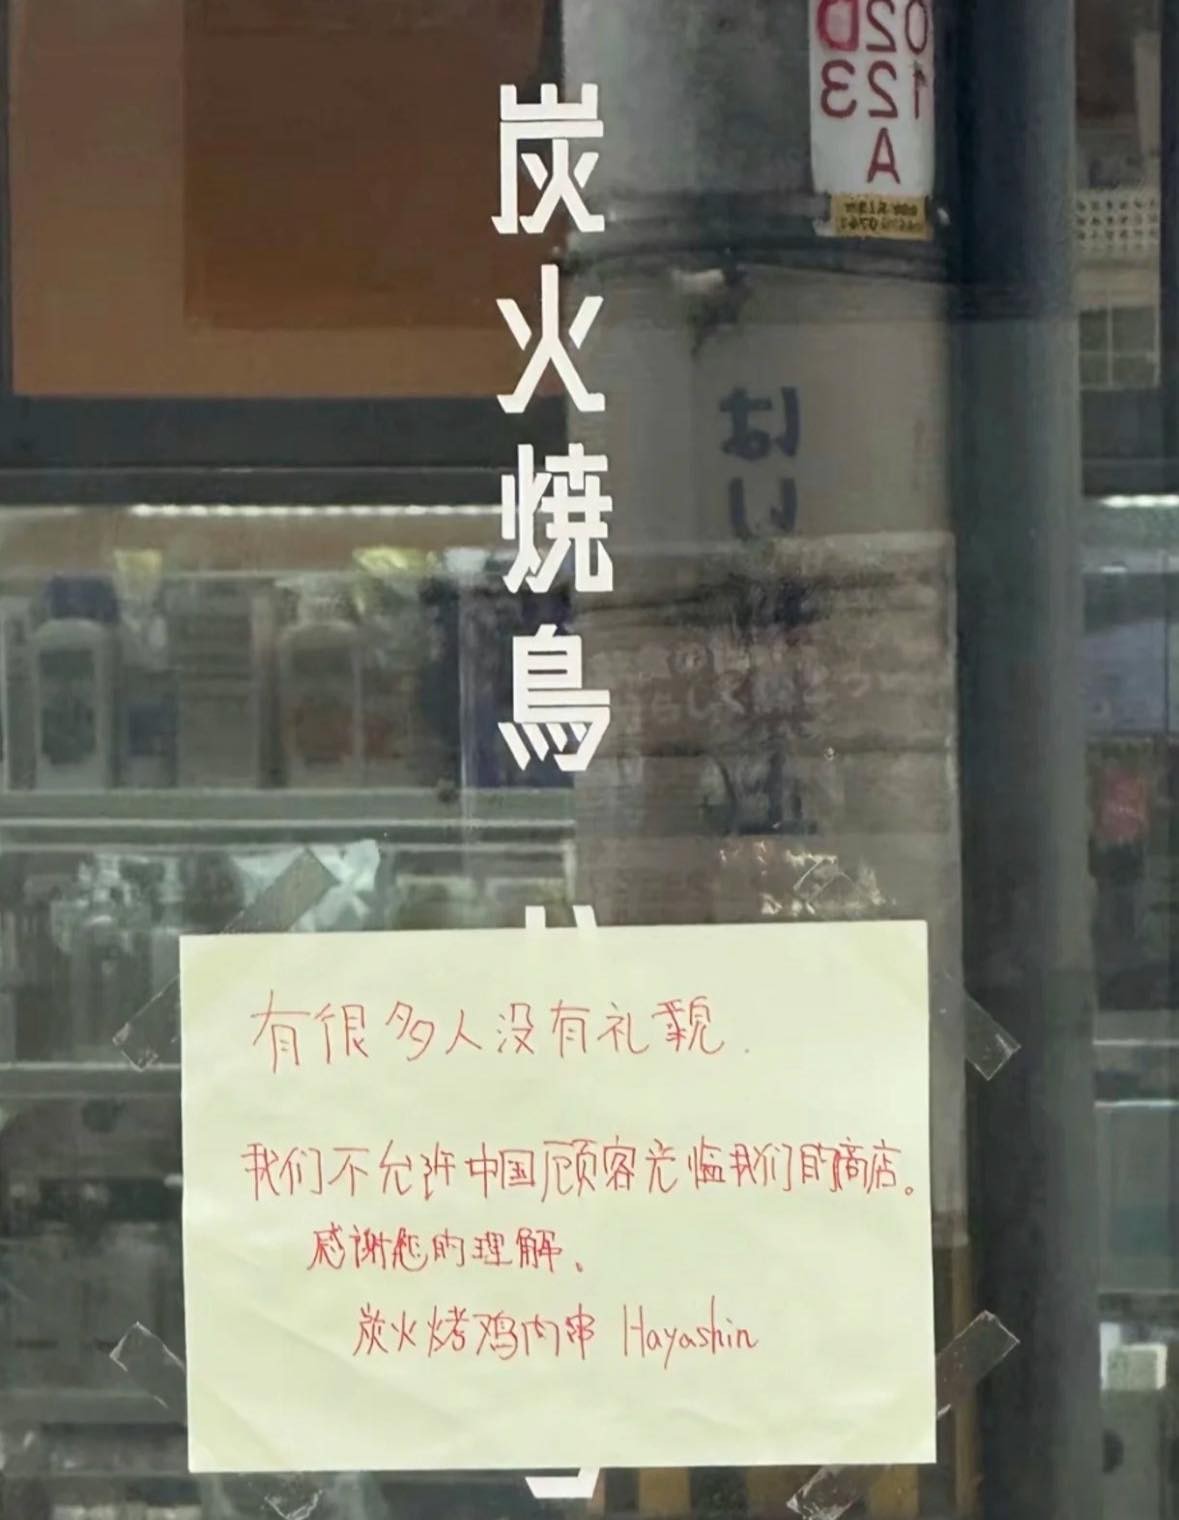 炭火焼鳥
02D
123
A
はい
有很多人没有礼貌.
我们不允许中国顾客光临我们的商店。
感谢您的理解。
炭火烤鸡肉串 Hayashin